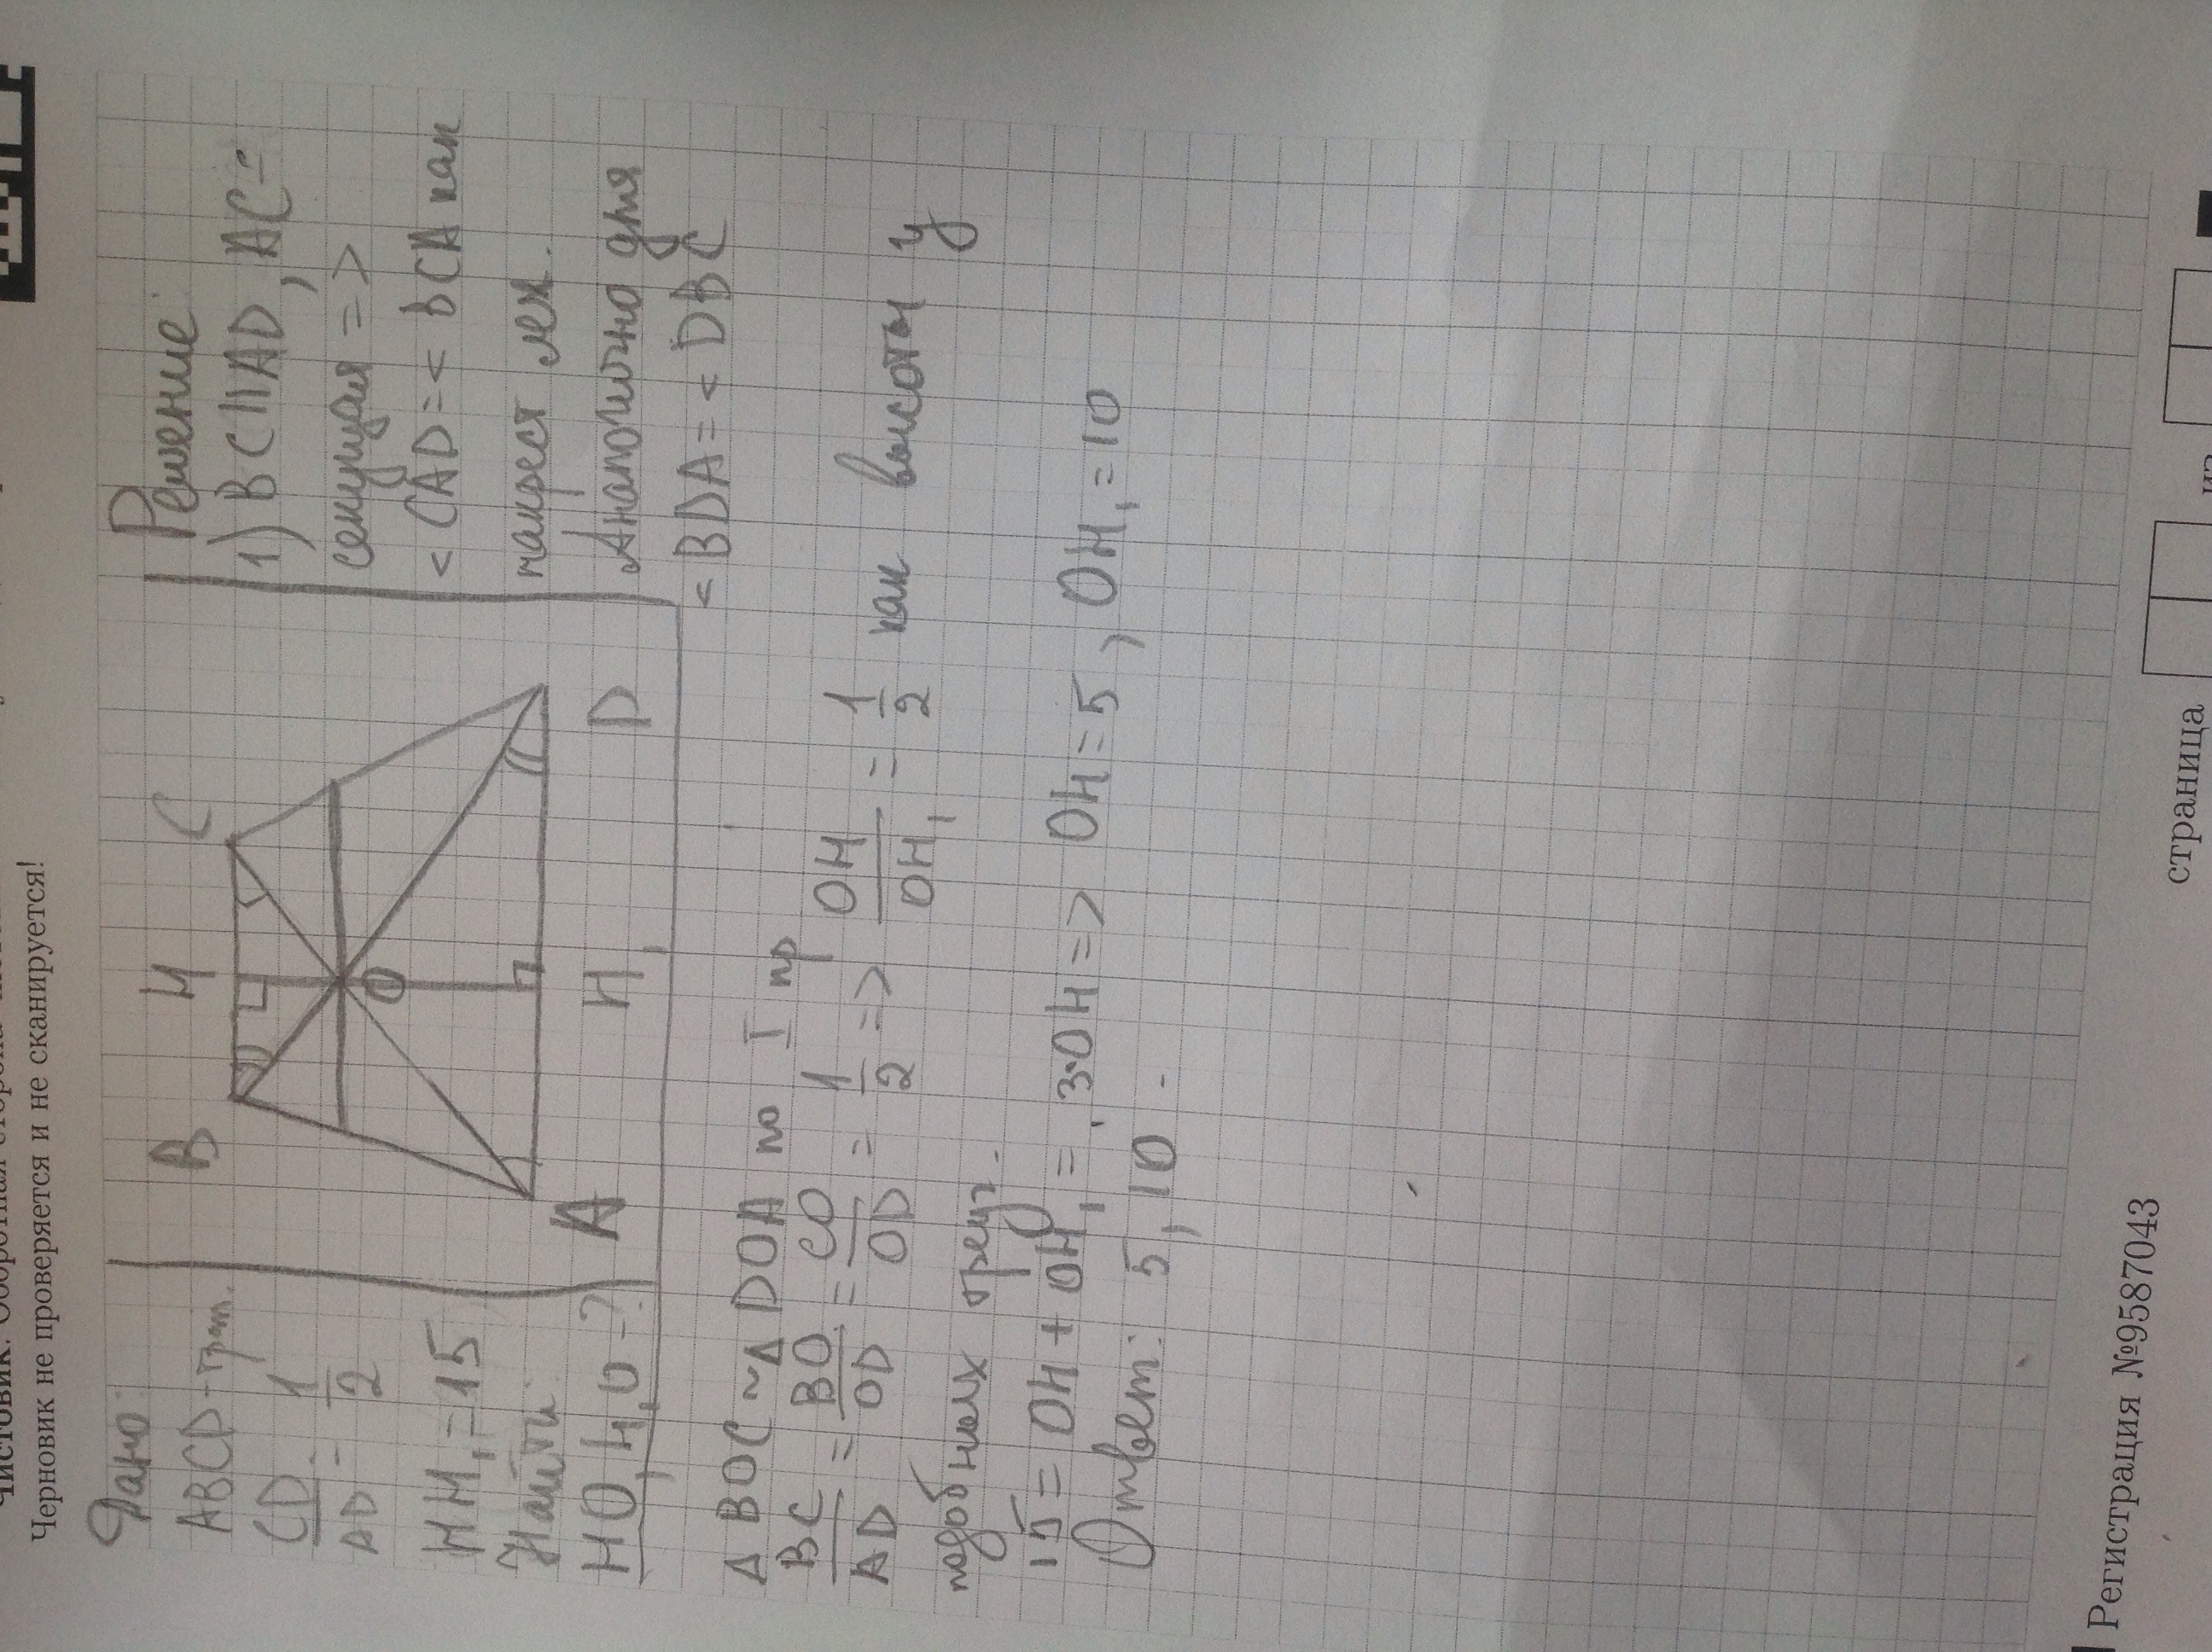 Черновик не проверяется и не сканируется!
Дано:
ABCD - трап.
CD/AD = 1/2
HH₁ = 15
Найти:
HO, H₁O - ?
B H C
O
A H₁ D
Решение:
1) BC || AD, AC -
секущая =>
< CAD = < BCA как
накрест леж.
Аналогично для
< BDA = < DBC
Δ BOC ~ Δ DOA по I пр
BC/AD = BO/OD = CO/OD = 1/2 => OH/OH₁ = 1/2 как высоты у
подобных треуг.
15 = OH + OH₁ = 3·OH => OH = 5, OH₁ = 10
Ответ: 5, 10.
страница
из
Регистрация №9587043